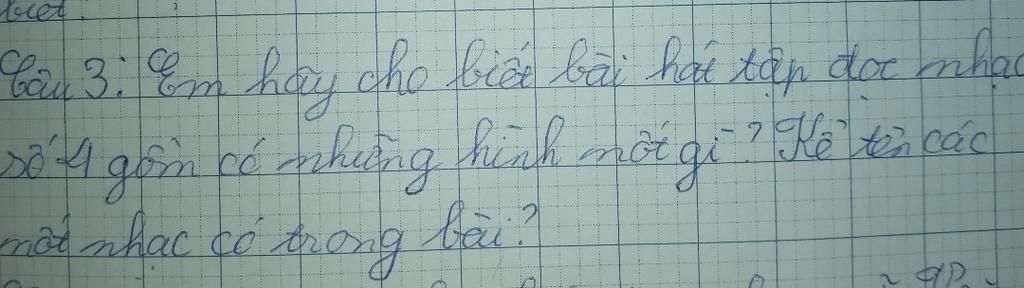 biết.
Câu 3: Em hãy cho biết bài hát tập đọc nhạc
số 4 gồm có những hình nốt gì? Kể tên các
nốt nhạc có trong bài?